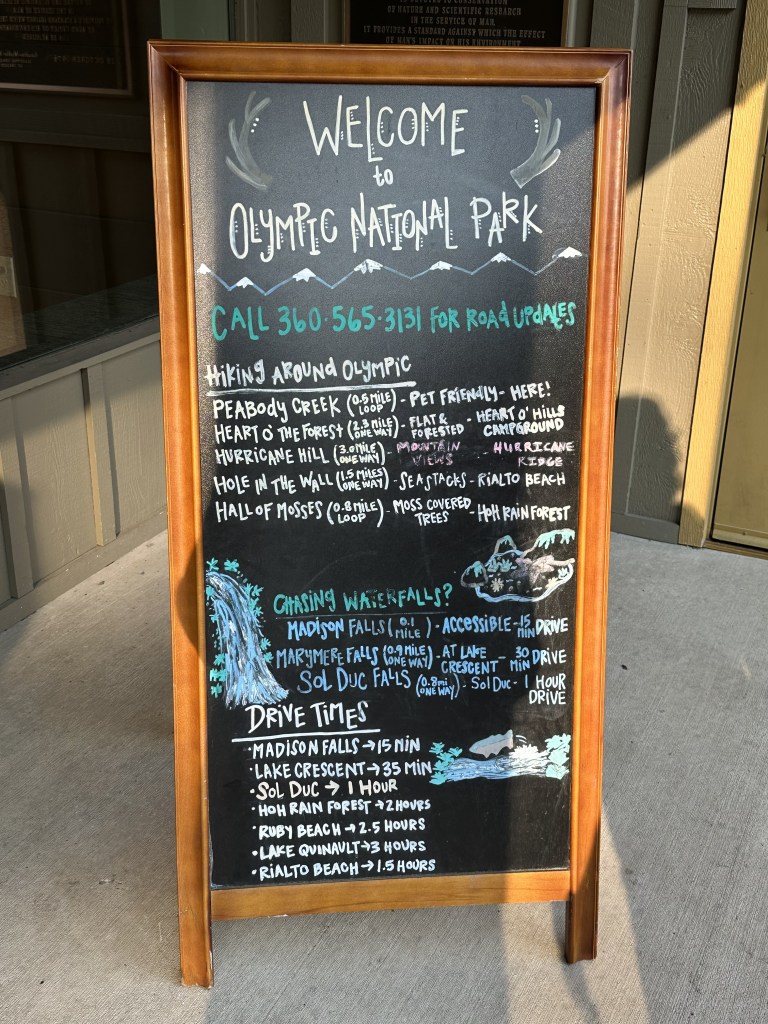 OF NATURE AND SCIENTIFIC RESEARCH
IN THE SERVICE OF MAN.
IT PROVIDES A STANDARD AGAINST WHICH THE EFFECT
OF MAN'S IMPACT ON HIS ENVIRONMENT
WELCOME
to
OLYMPIC NATIONAL PARK
CALL 360·565·3131 FOR ROAD UPDATES
HIKING AROUND OLYMPIC
PEABODY CREEK (0.5 MILE LOOP) - PET FRIENDLY - HERE!
HEART O' THE FOREST (2.3 MILE ONE WAY) - FLAT & FORESTED - HEART O' HILLS CAMPGROUND
HURRICANE HILL (3.0 MILE ONE WAY) - MOUNTAIN VIEWS - HURRICANE RIDGE
HOLE IN THE WALL (1.5 MILES ONE WAY) - SEASTACKS - RIALTO BEACH
HALL OF MOSSES (0.8 MILE LOOP) - MOSS COVERED TREES - HOH RAIN FOREST
CHASING WATERFALLS?
MADISON FALLS (0.1 MILE) - ACCESSIBLE - 15 MIN DRIVE
MARYMERE FALLS (0.9 MILE ONE WAY) - AT LAKE CRESCENT - 30 MIN DRIVE
SOL DUC FALLS (0.8mi ONE WAY) - SOL DUC - 1 HOUR DRIVE
DRIVE TIMES
·MADISON FALLS → 15 MIN
·LAKE CRESCENT → 35 MIN
·SOL DUC → 1 HOUR
·HOH RAIN FOREST → 2 HOURS
·RUBY BEACH → 2.5 HOURS
·LAKE QUINAULT → 3 HOURS
·RIALTO BEACH → 1.5 HOURS